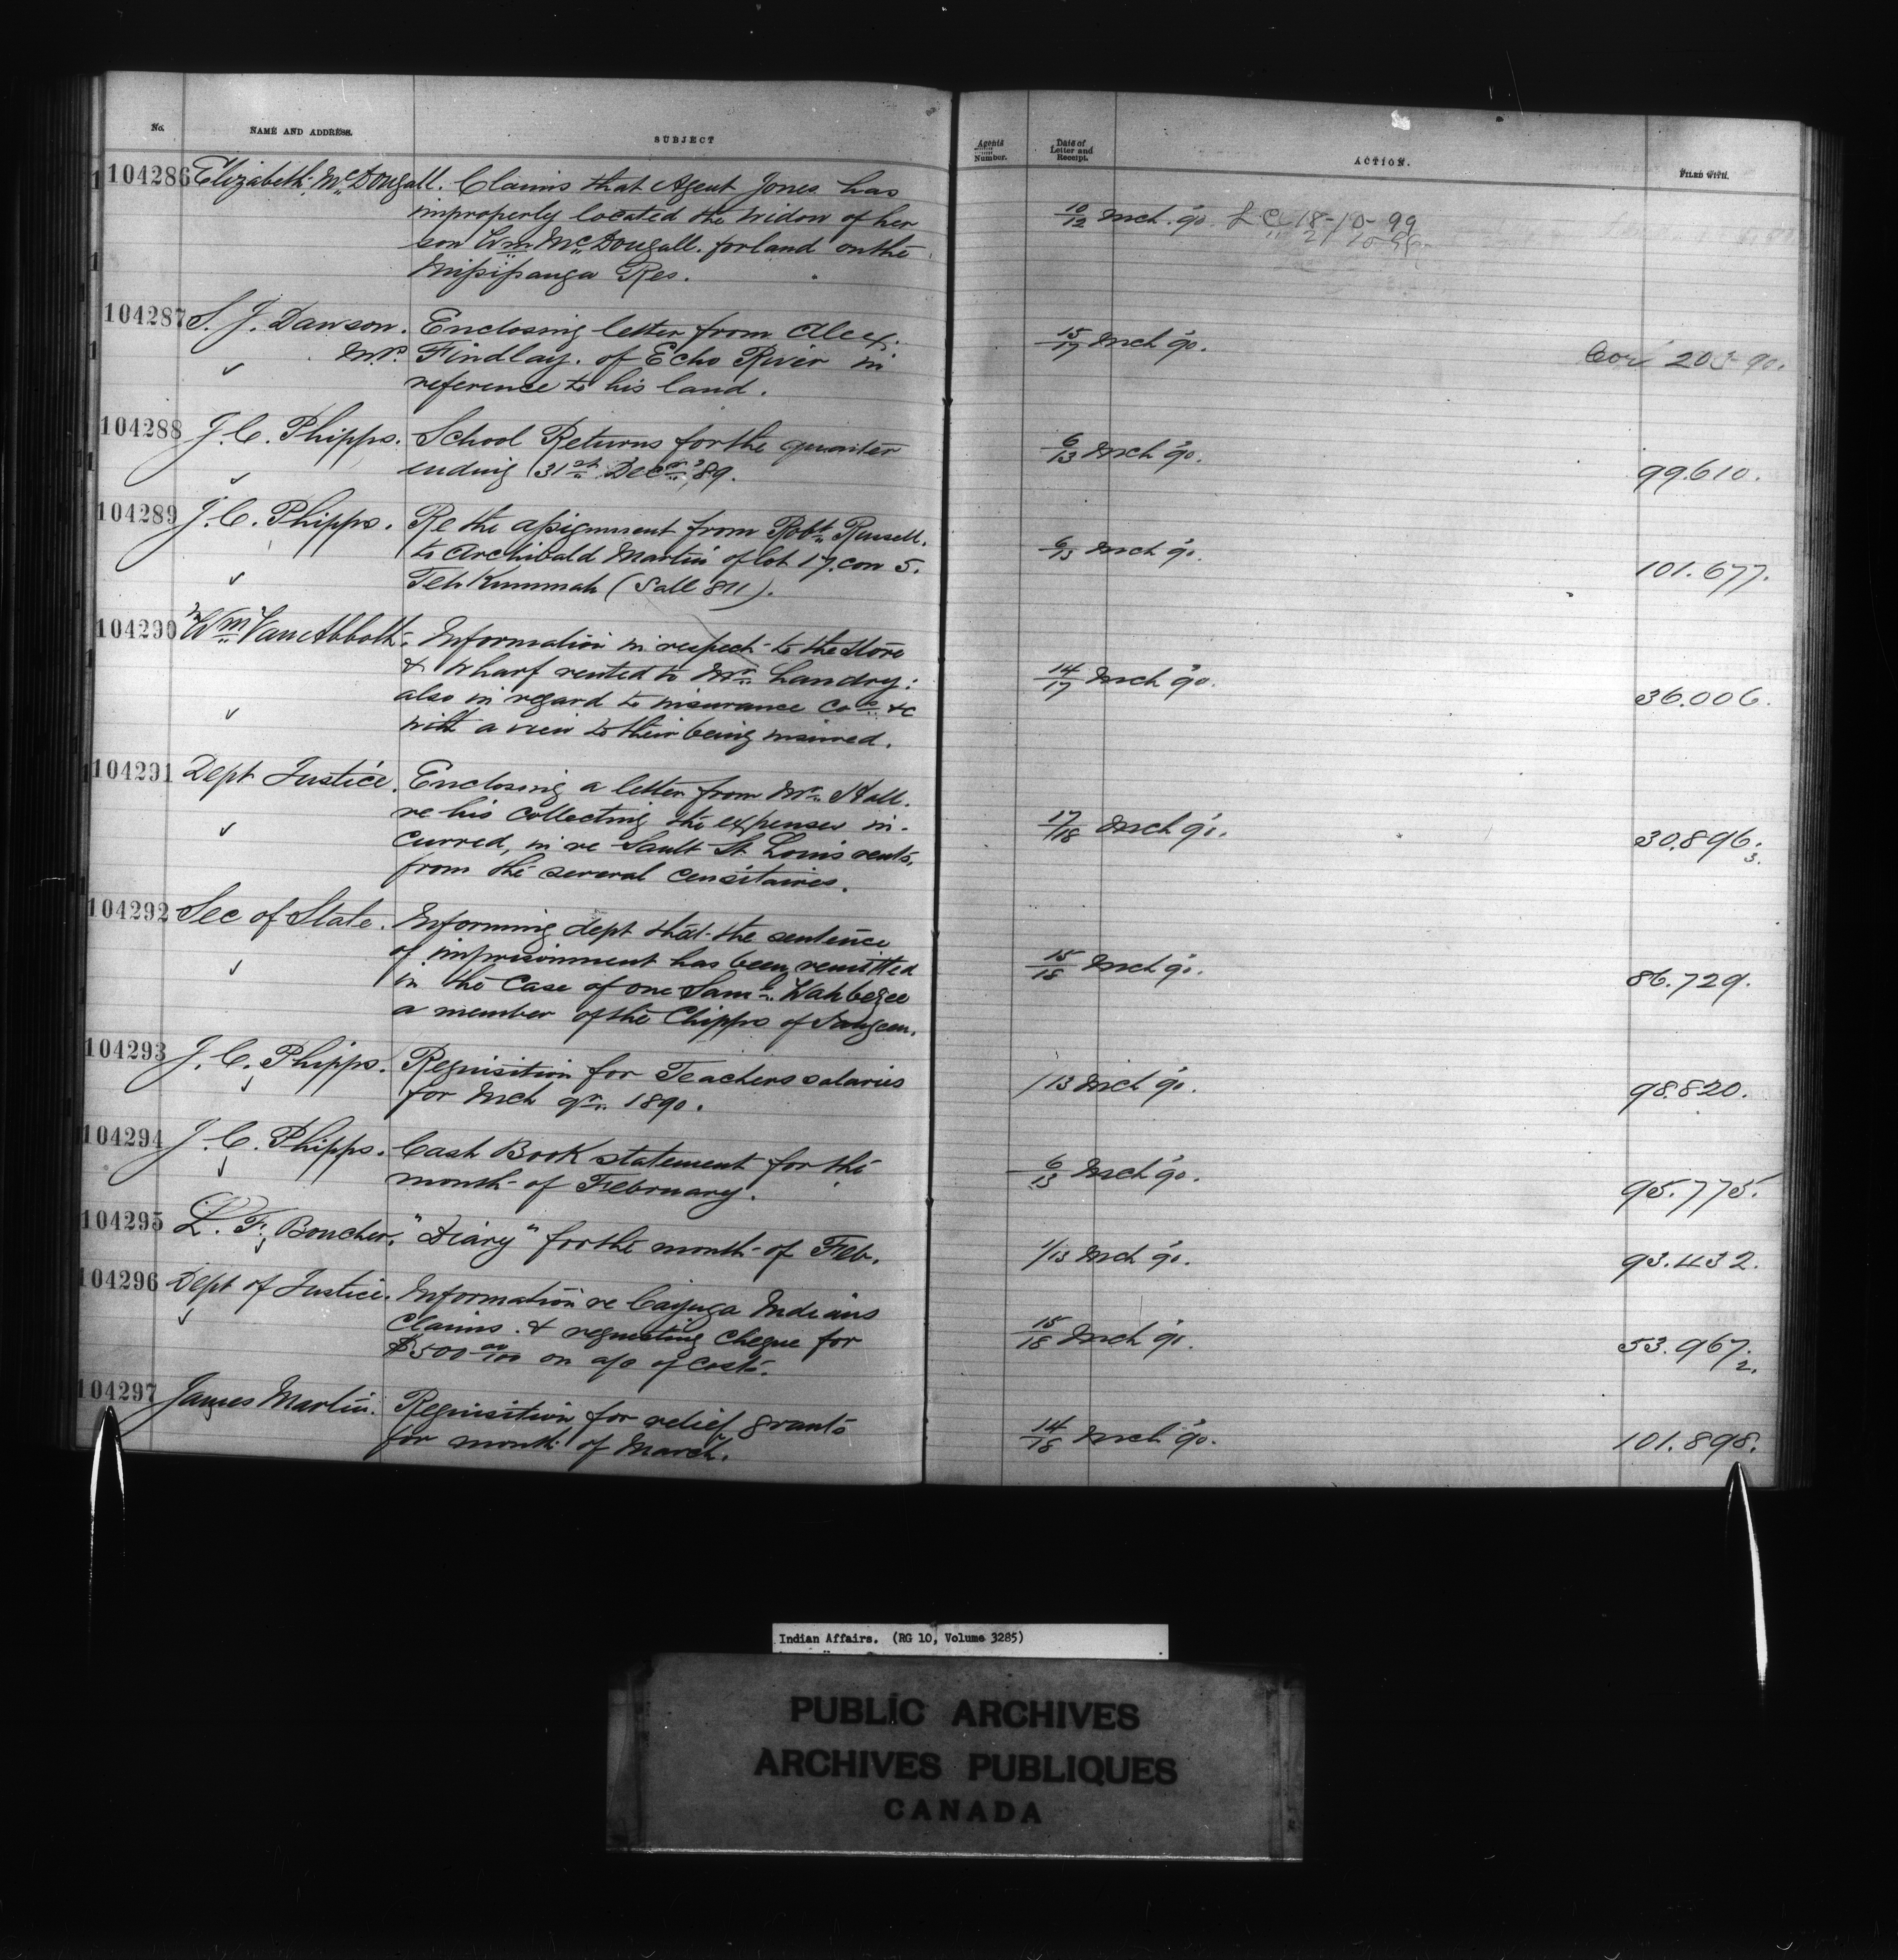 No. NAME AND ADDRESS. SUBJECT Agents Number. Date of Letter and Receipt. ACTION. FILED WITH.
104286 Elizabeth McDougall. Claims that Agent Jones has
improperly located the widow of her
son Wm McDougall. for land on the
Missipauga Res.
10/12 Mch. '90. L C 18-10-99
" 21 10 99
104287 S. J. Dawson. Enclosing letter from Alex.
M.P. Findlay. of Echo River in
reference to his land.
15/17 Mch '90. Cor 203-90.
104288 J. C. Phipps. School Returns for the quarter
ending 31st Decr '89.
6/13 Mch '90. 99.610.
104289 J. C. Phipps. Re the assignment from Robt Russell.
to Archibald Martin of lot 17. con 5.
Teh Kummah (Sale 811).
6/13 Mch '90. 101.677.
104290 Wm Van Abbott. Information in respect to the store
& wharf rented to Mr. Landry:
also in regard to insurance Cos &c
with a view to their being insured.
14/17 Mch '90. 36.006.
104291 Dept Justice. Enclosing a letter from Mr. Hall.
re his collecting the expenses in-
curred, in re Sault St. Louis rents,
from the several censitaires.
17/18 Mch '90. 30.896. 3.
104292 Sec of State. Informing dept that the sentence
of imprisonment has been remitted
in the case of one Saml. Wahbezee
a member of the Chipps of Saugeen.
15/18 Mch '90. 86.729.
104293 J. C. Phipps. Requisition for Teachers salaries
for Mch qr. 1890.
/13 Mch '90. 98.820.
104294 J. C. Phipps. Cash Book statement for the
month of February.
6/13 Mch '90. 95.775.
104295 L. F. Boucher. "Diary" for the month of Feb.
1/13 Mch '90. 93.432.
104296 Dept of Justice. Information re Cayuga Indians
Claims. & requesting cheque for
$500 00/100 on a/c of costs.
15/18 Mch '90. 53.967. 2.
104297 James Martin. Requisition for relief grants
for month of March.
14/18 Mch '90. 101.898.
Indian Affairs. (RG 10, Volume 3285)
PUBLIC ARCHIVES
ARCHIVES PUBLIQUES
CANADA